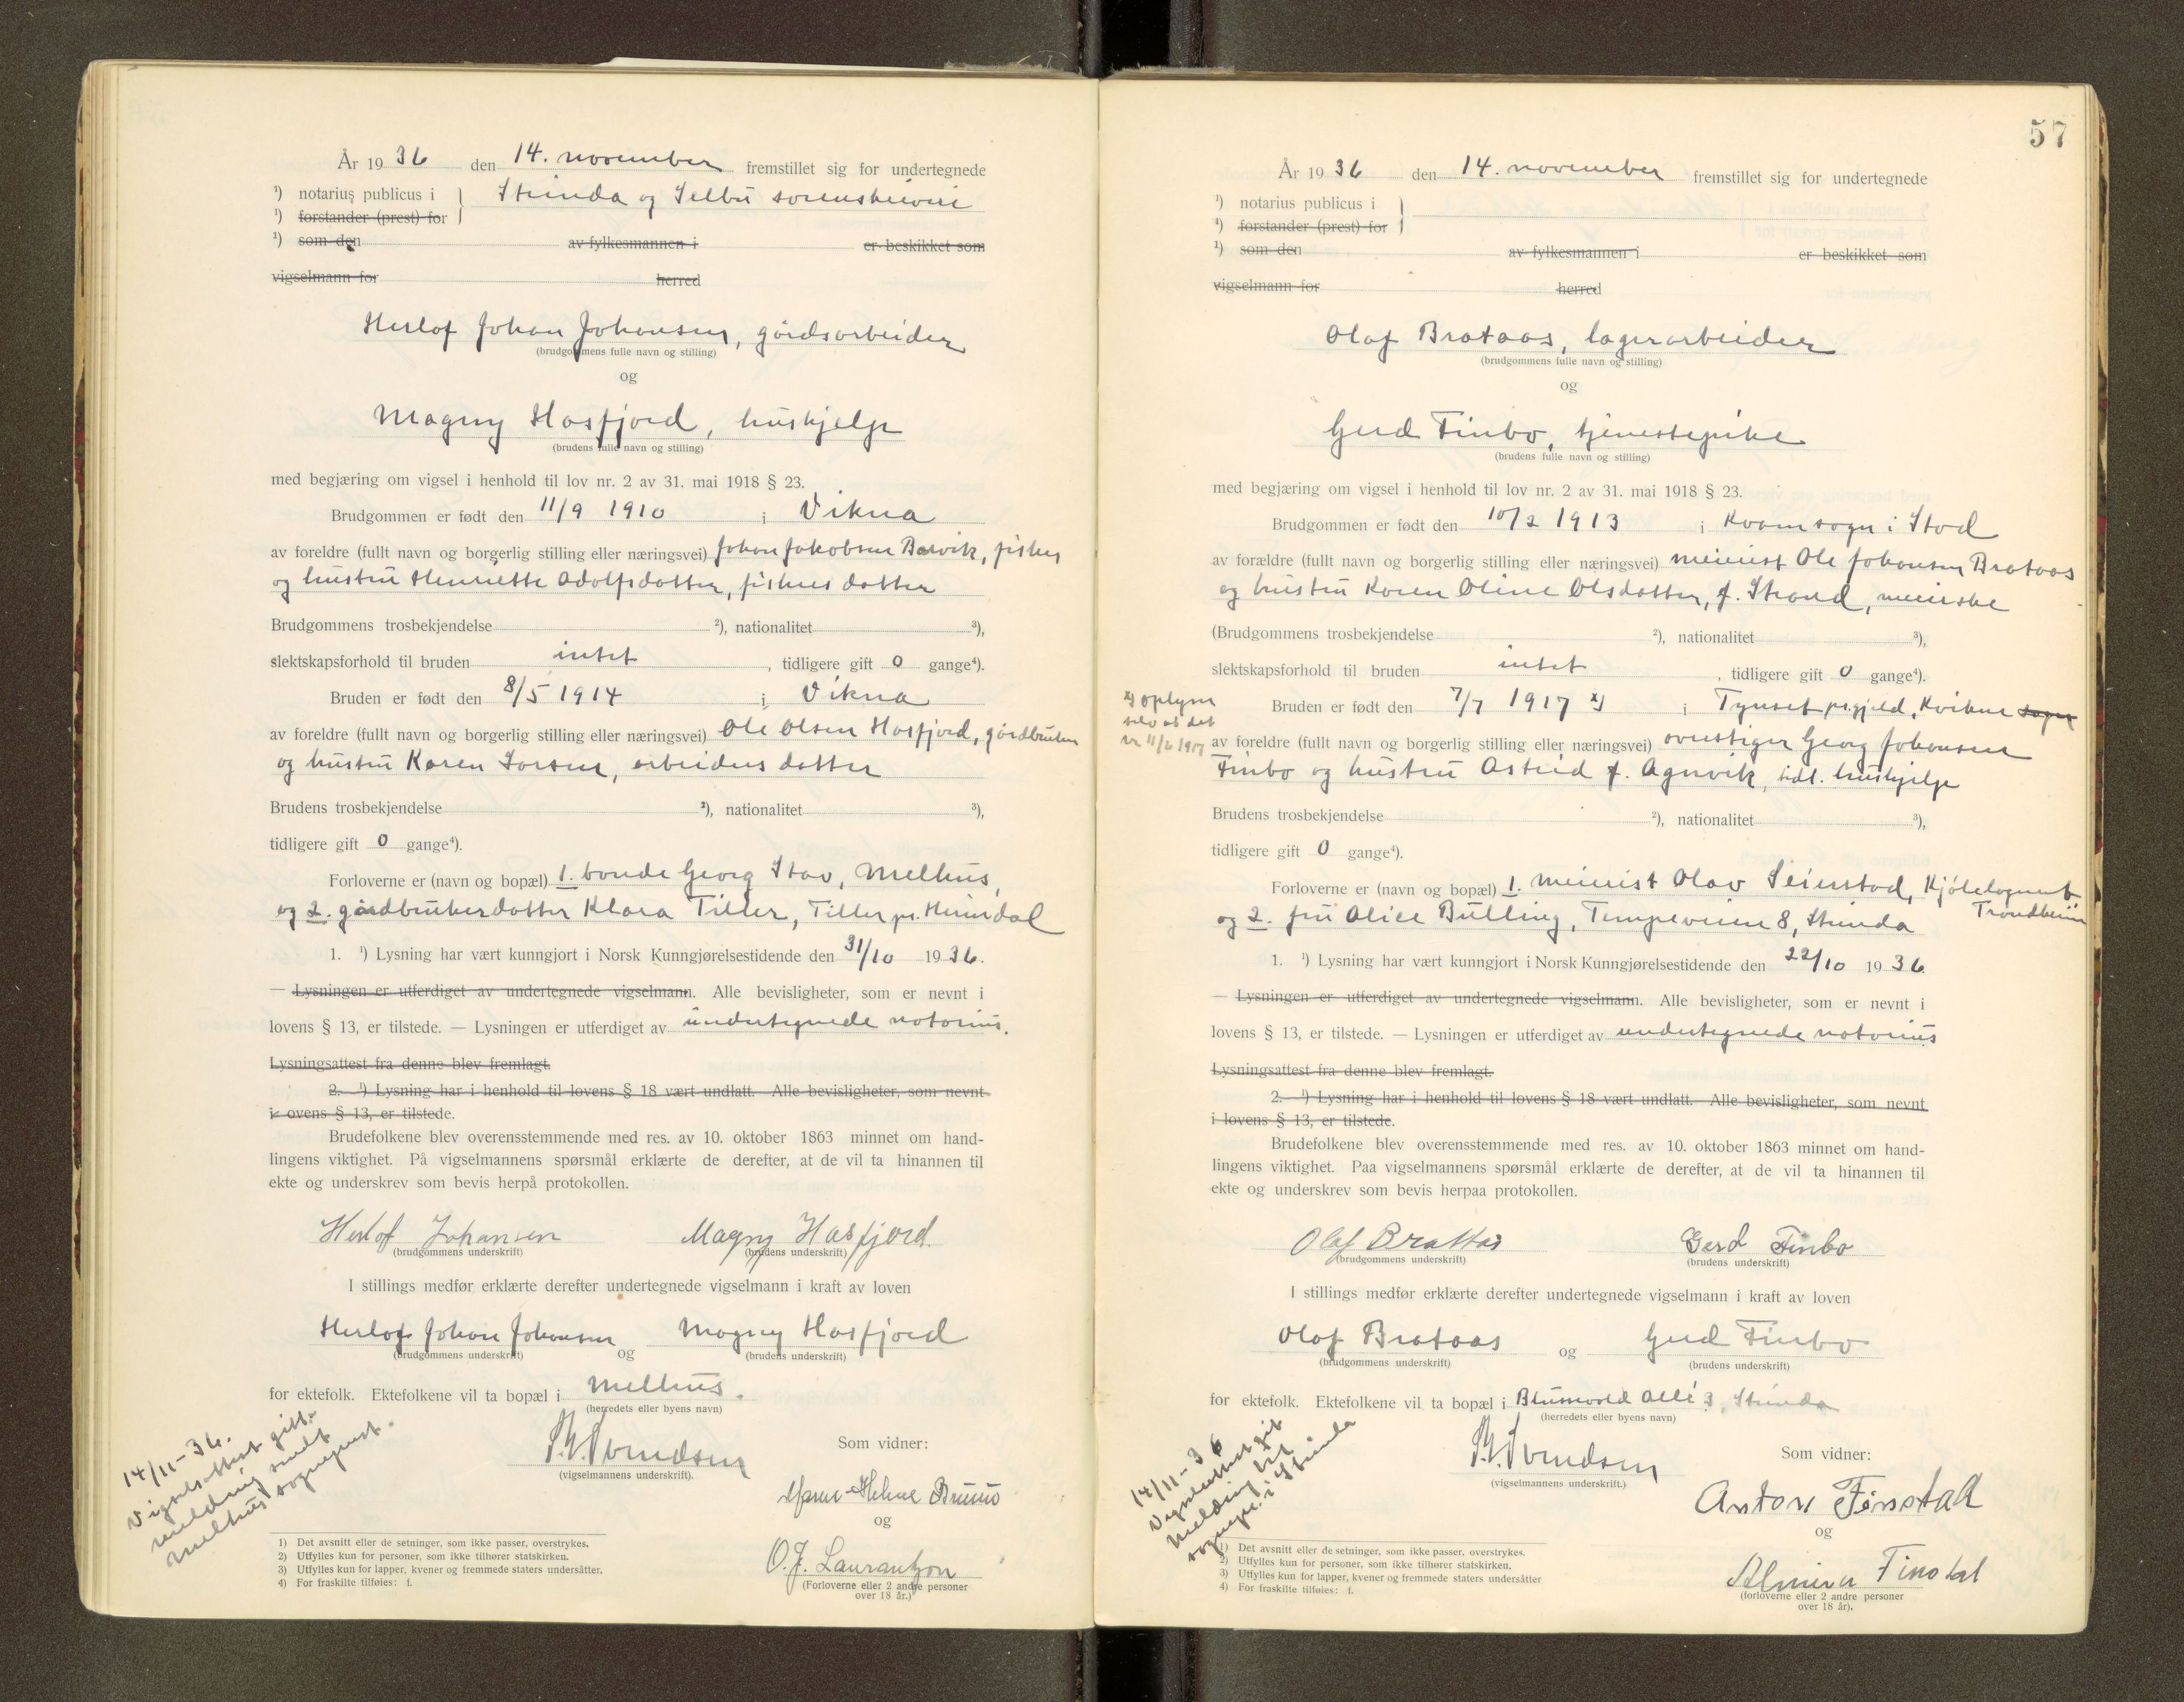 År 1936 den 14. november fremstillet sig for undertegnede
¹) notarius publicus i } Strinda og Selbu sorenskriveri
¹) forstander (prest) for
¹) som den av fylkesmannen i er beskikket som
vigselmann for herred
Herlof Johan Johansen, gårdsarbeider
(brudgommens fulle navn og stilling)
og
Magny Hasfjord, hushjelp
(brudens fulle navn og stilling)
med begjæring om vigsel i henhold til lov nr. 2 av 31. mai 1918 § 23.
Brudgommen er født den 11/9 1910 i Vikna
av foreldre (fullt navn og borgerlig stilling eller næringsvei) Johan Jakobsen Borvik, fisker
og hustru Henriette Adolfsdatter, fiskers datter
Brudgommens trosbekjendelse ²), nationalitet ³),
slektskapsforhold til bruden intet, tidligere gift 0 gange⁴).
Bruden er født den 8/5 1914 i Vikna
av foreldre (fullt navn og borgerlig stilling eller næringsvei) Ole Olsen Hasfjord, gårdbruker
og hustru Karen Larsen, arbeiders datter
Brudens trosbekjendelse ²), nationalitet ³),
tidligere gift 0 gange⁴).
Forloverne er (navn og bopæl) 1. bonde Georg Stav, Melhus,
og 2. gårdbrukerdatter Klara Tiller, Tiller pr. Heimdal
1. ¹) Lysning har vært kunngjort i Norsk Kunngjørelsestidende den 31/10 1936.
— Lysningen er utferdiget av undertegnede vigselmann. Alle bevisligheter, som er nevnt i
lovens § 13, er tilstede. — Lysningen er utferdiget av undertegnede notarius.
Lysningsattest fra denne blev fremlagt.
2. ¹) Lysning har i henhold til lovens § 18 vært undlatt. Alle bevisligheter, som nevnt
i ovens § 13, er tilstede.
Brudefolkene blev overensstemmende med res. av 10. oktober 1863 minnet om hand-
lingens viktighet. På vigselmannens spørsmål erklærte de derefter, at de vil ta hinannen til
ekte og underskrev som bevis herpå protokollen.
Herlof Johansen Magny Hasfjord.
(brudgommens underskrift) (brudens underskrift)
I stillings medfør erklærte derefter undertegnede vigselmann i kraft av loven
Herlof Johan Johansen og Magny Hasfjord
(brudgommens underskrift) (brudens underskrift)
for ektefolk. Ektefolkene vil ta bopæl i Melhus.
(herredets eller byens navn)
14/11-36.
Vigselsattest gitt.
melding sendt
Melhus sogneprest.
Svendsen
(vigselmannens underskrift).
Som vidner:
Helene Bruno
og
O.J. Laurantzon
(Forloverne eller 2 andre personer
over 18 år.)
1) Det avsnitt eller de setninger, som ikke passer, overstrykes.
2) Utfylles kun for personer, som ikke tilhører statskirken.
3) Utfylles kun for lapper, kvener og fremmede staters undersåtter.
4) For fraskilte tilføies: f.
57
År 1936 den 14. november fremstillet sig for undertegnede
¹) notarius publicus i }
¹) forstander (prest) for
¹) som den av fylkesmannen i er beskikket som
vigselmann for herred
Olaf Brataas, lagerarbeider
(brudgommens fulle navn og stilling)
og
Gerd Finbo, tjenestepike
(brudens fulle navn og stilling)
med begjæring om vigsel i henhold til lov nr. 2 av 31. mai 1918 § 23.
Brudgommen er født den 10/2 1913 i Kvam sogn i Stod
av forældre (fullt navn og borgerlig stilling eller næringsvei) meierist Ole Johansen Brataas
og hustru Karen Oline Olsdatter, f. Strand, meierske
(Brudgommens trosbekjendelse ²), nationalitet ³),
slektskapsforhold til bruden intet, tidligere gift 0 gange⁴).
x) oplyser
selv at det
er 11/6 1917
Bruden er født den 7/7 1917 x) i Tynset prgjeld, Kvikne sogn
av foreldre (fullt navn og borgerlig stilling eller næringsvei) overstiger Georg Johansen
Finbo og hustru Astrid f. Agnvik, tidl. hushjelp
Brudens trosbekjendelse ²), nationalitet ³),
tidligere gift 0 gange⁴).
Forloverne er (navn og bopæl) 1. meierist Olav Seierstad, Kjøtelogment
Trondheim
og 2. fru Alice Bulling, Tempeveien 8, Strinda
1. ¹) Lysning har vært kunngjort i Norsk Kunngjørelsestidende den 22/10 1936
— Lysningen er utferdiget av undertegnede vigselmann. Alle bevisligheter, som er nevnt i
lovens § 13, er tilstede. — Lysningen er utferdiget av undertegnede notarius
Lysningsattest fra denne blev fremlagt.
2. ¹) Lysning har i henhold til lovens § 18 vært undlatt. Alle bevisligheter, som nevnt
i lovens § 13, er tilstede.
Brudefolkene blev overensstemmende med res. av 10. oktober 1863 minnet om hand-
lingens viktighet. Paa vigselmannens spørsmål erklærte de derefter, at de vil ta hinannen til
ekte og underskrev som bevis herpaa protokollen.
Olaf Brattås Gerd Finbo
(brudgommens underskrift) (brudens underskrift)
I stillings medfør erklærte derefter undertegnede vigselmann i kraft av loven
Olaf Brataas og Gerd Finbo
(brudgommens underskrift) (brudens underskrift)
for ektefolk. Ektefolkene vil ta bopæl i Blussvold Allé 3, Strinda
(herredets eller byens navn)
14/11-36
Vigselattest git
Melding til
sognepr. i Strinda
Svendsen
(vigselmannens underskrift.)
Som vidner:
Anton Finstad
og
Almira Finstad
(forloverne eller 2 andre personer
over 18 år).
1) Det avsnitt eller de setninger, som ikke passer, overstrykes.
2) Utfylles kun for personer, som ikke tilhører statskirken.
3) Utfylles kun for lapper, kvener og fremmede staters undersåtter
4) For fraskilte tilføies: f.